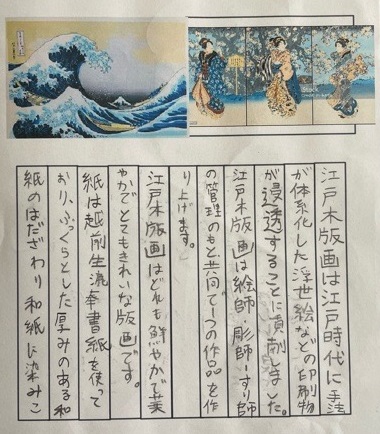 江戸木版画は江戸時代に手法
が体系化した浮世絵などの印刷物
が浸透することに貢献しました。
江戸木版画は絵師・彫師・すり師
の管理のもと共同で一つの作品を作
り上げます。
江戸木版画はどれも鮮やかで葉
やかでとてもきれいな版画です。
紙は越前生漉奉書紙を使って
おり、ふっくらとした厚みのある和
紙のはだざわり和紙に染みこ